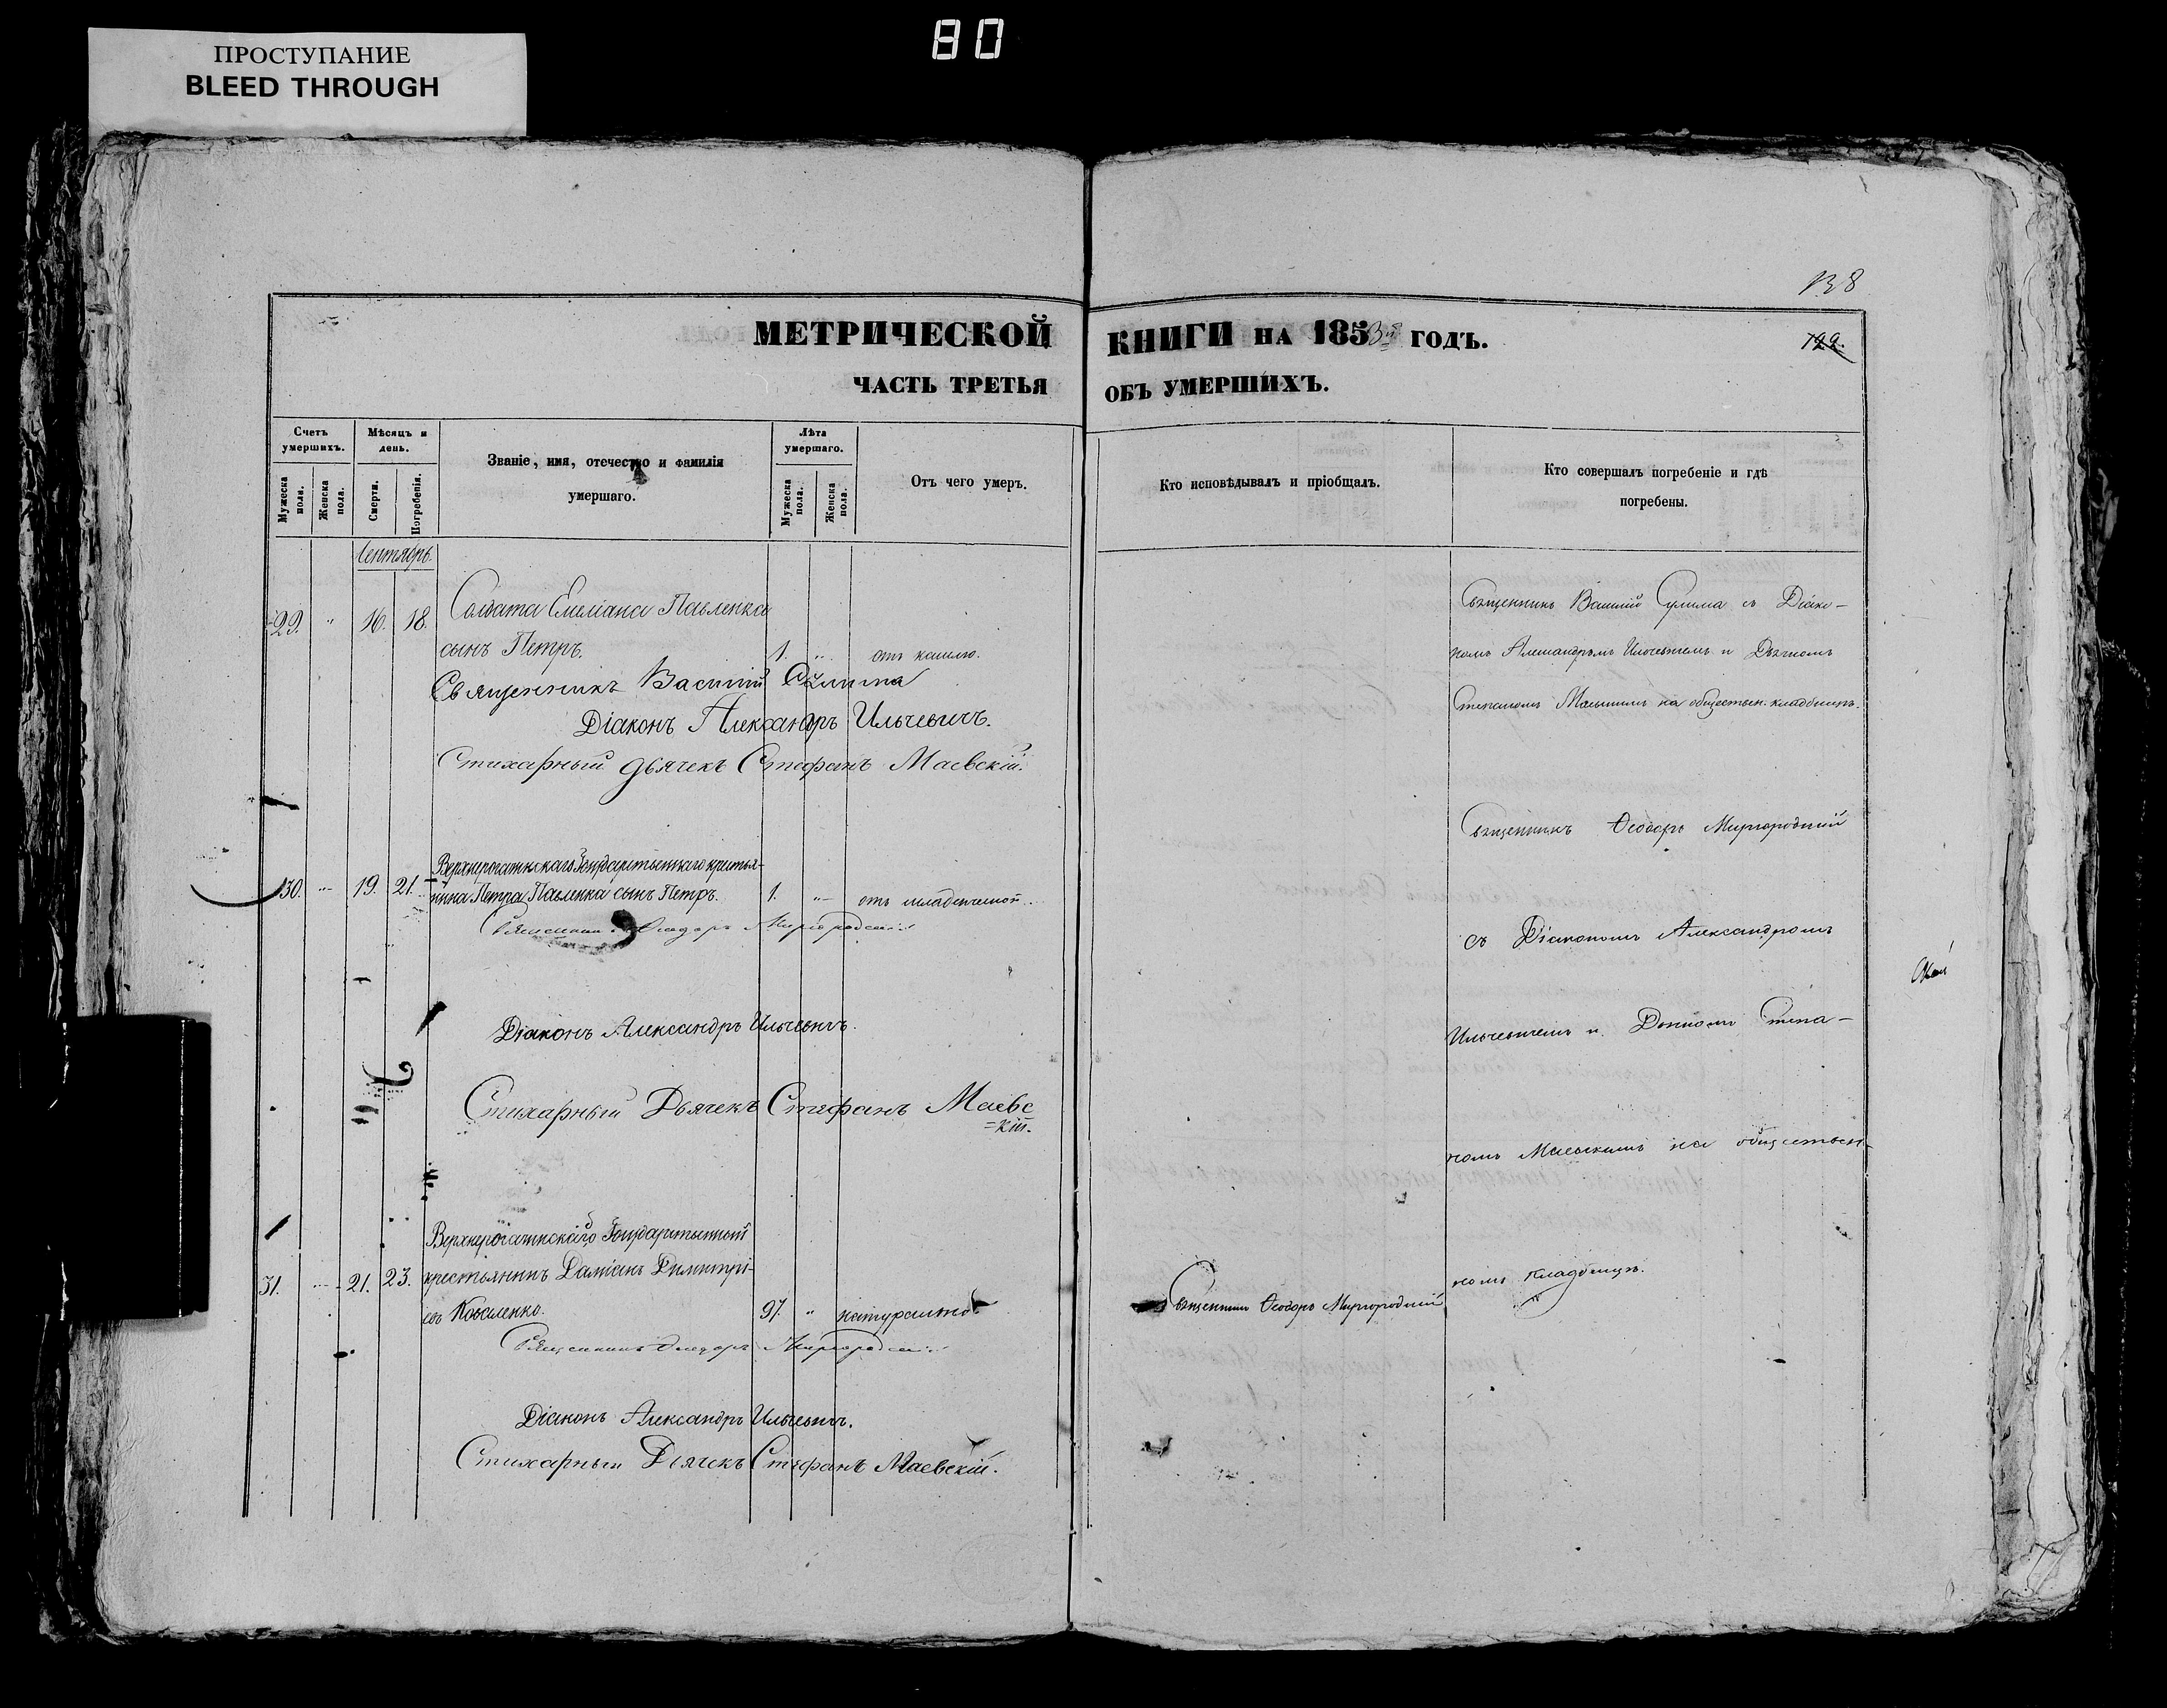 80
ПРОСТУПАНИЕ
BLEED THROUGH
138
МЕТРИЧЕСКОЙ КНИГИ НА 1853й ГОДЪ.
ЧАСТЬ ТРЕТЬЯ ОБЪ УМЕРШИХЪ.
Счетъ умершихъ.
Мужеска пола.
Женска пола.
Мѣсяцъ и день.
Смерти.
Погребенія.
Званіе, имя, отечество и фамилія
умершаго.
Лѣта умершаго.
Мужеска пола.
Женска пола.
Отъ чего умеръ.
Кто исповѣдывалъ и пріобщалъ.
Кто совершалъ погребеніе и гдѣ
погребены.
Сентябрь.
29. " 16. 18. Солдата Емеліана Павленка
сынъ Петръ. 1. " отъ кашлю.
Священникъ Василій Сулима
Діаконъ Александръ Ильчевичъ.
Стихарный дьячекъ Стефанъ Маевскій.
Священникъ Василій Сулима съ Діако-
номъ Александромъ Ильчевичемъ и Дьячкомъ
Степаномъ Маевскимъ на обществен. кладбищѣ.
30. " 19. 21. Верхнерогачикскаго Государственнаго крестья-
нина Петра Павленка сынъ Петръ. 1. " отъ младенческой.
Священникъ Ѳеодоръ Миргородскій
Діаконъ Александръ Ильчевичъ.
Стихарный Дьячекъ Стефанъ Маевс
=кій.
Священникъ Ѳеодоръ Миргородскій
съ Діакономъ Александромъ
Ильчевичемъ и Дьячкомъ Степа-
номъ Маевскимъ на обществен-
номъ кладбищѣ.
31. " 21. 23. Верхнерогачикскаго Государственный
крестьянинъ Даміанъ Димитрі-
евъ Коваленко. 97. " натурально.
Священникъ Ѳеодоръ Миргородскій
Діаконъ Александръ Ильчевичъ.
Стихарный Дьячекъ Стефанъ Маевскій.
Священникъ Ѳеодоръ Миргородскій